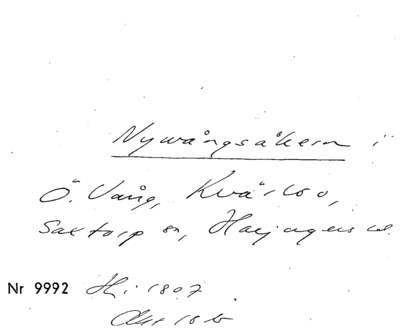 Nywångsåkern i
Ö. Vång, Kvärlöv,
Saxtorp sn, Harjagers hd.
Nr 9992 Hi 1807
Akt 18